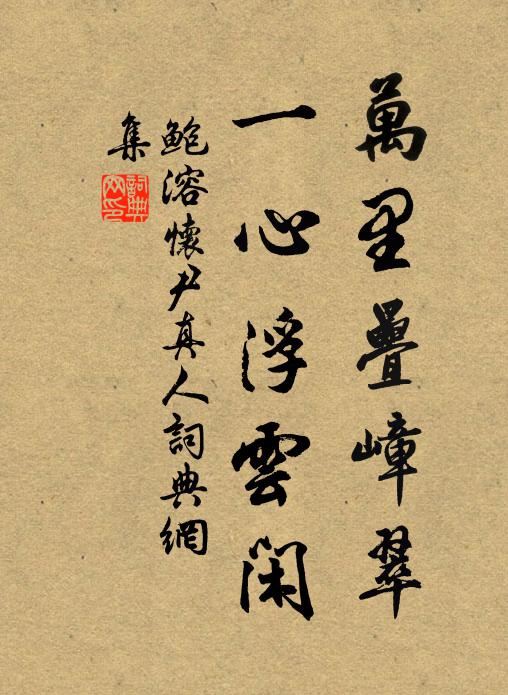 萬里疊嶂翠
一心浮雲閑
鮑溶懷尹真人詞典網
集
詞典網印